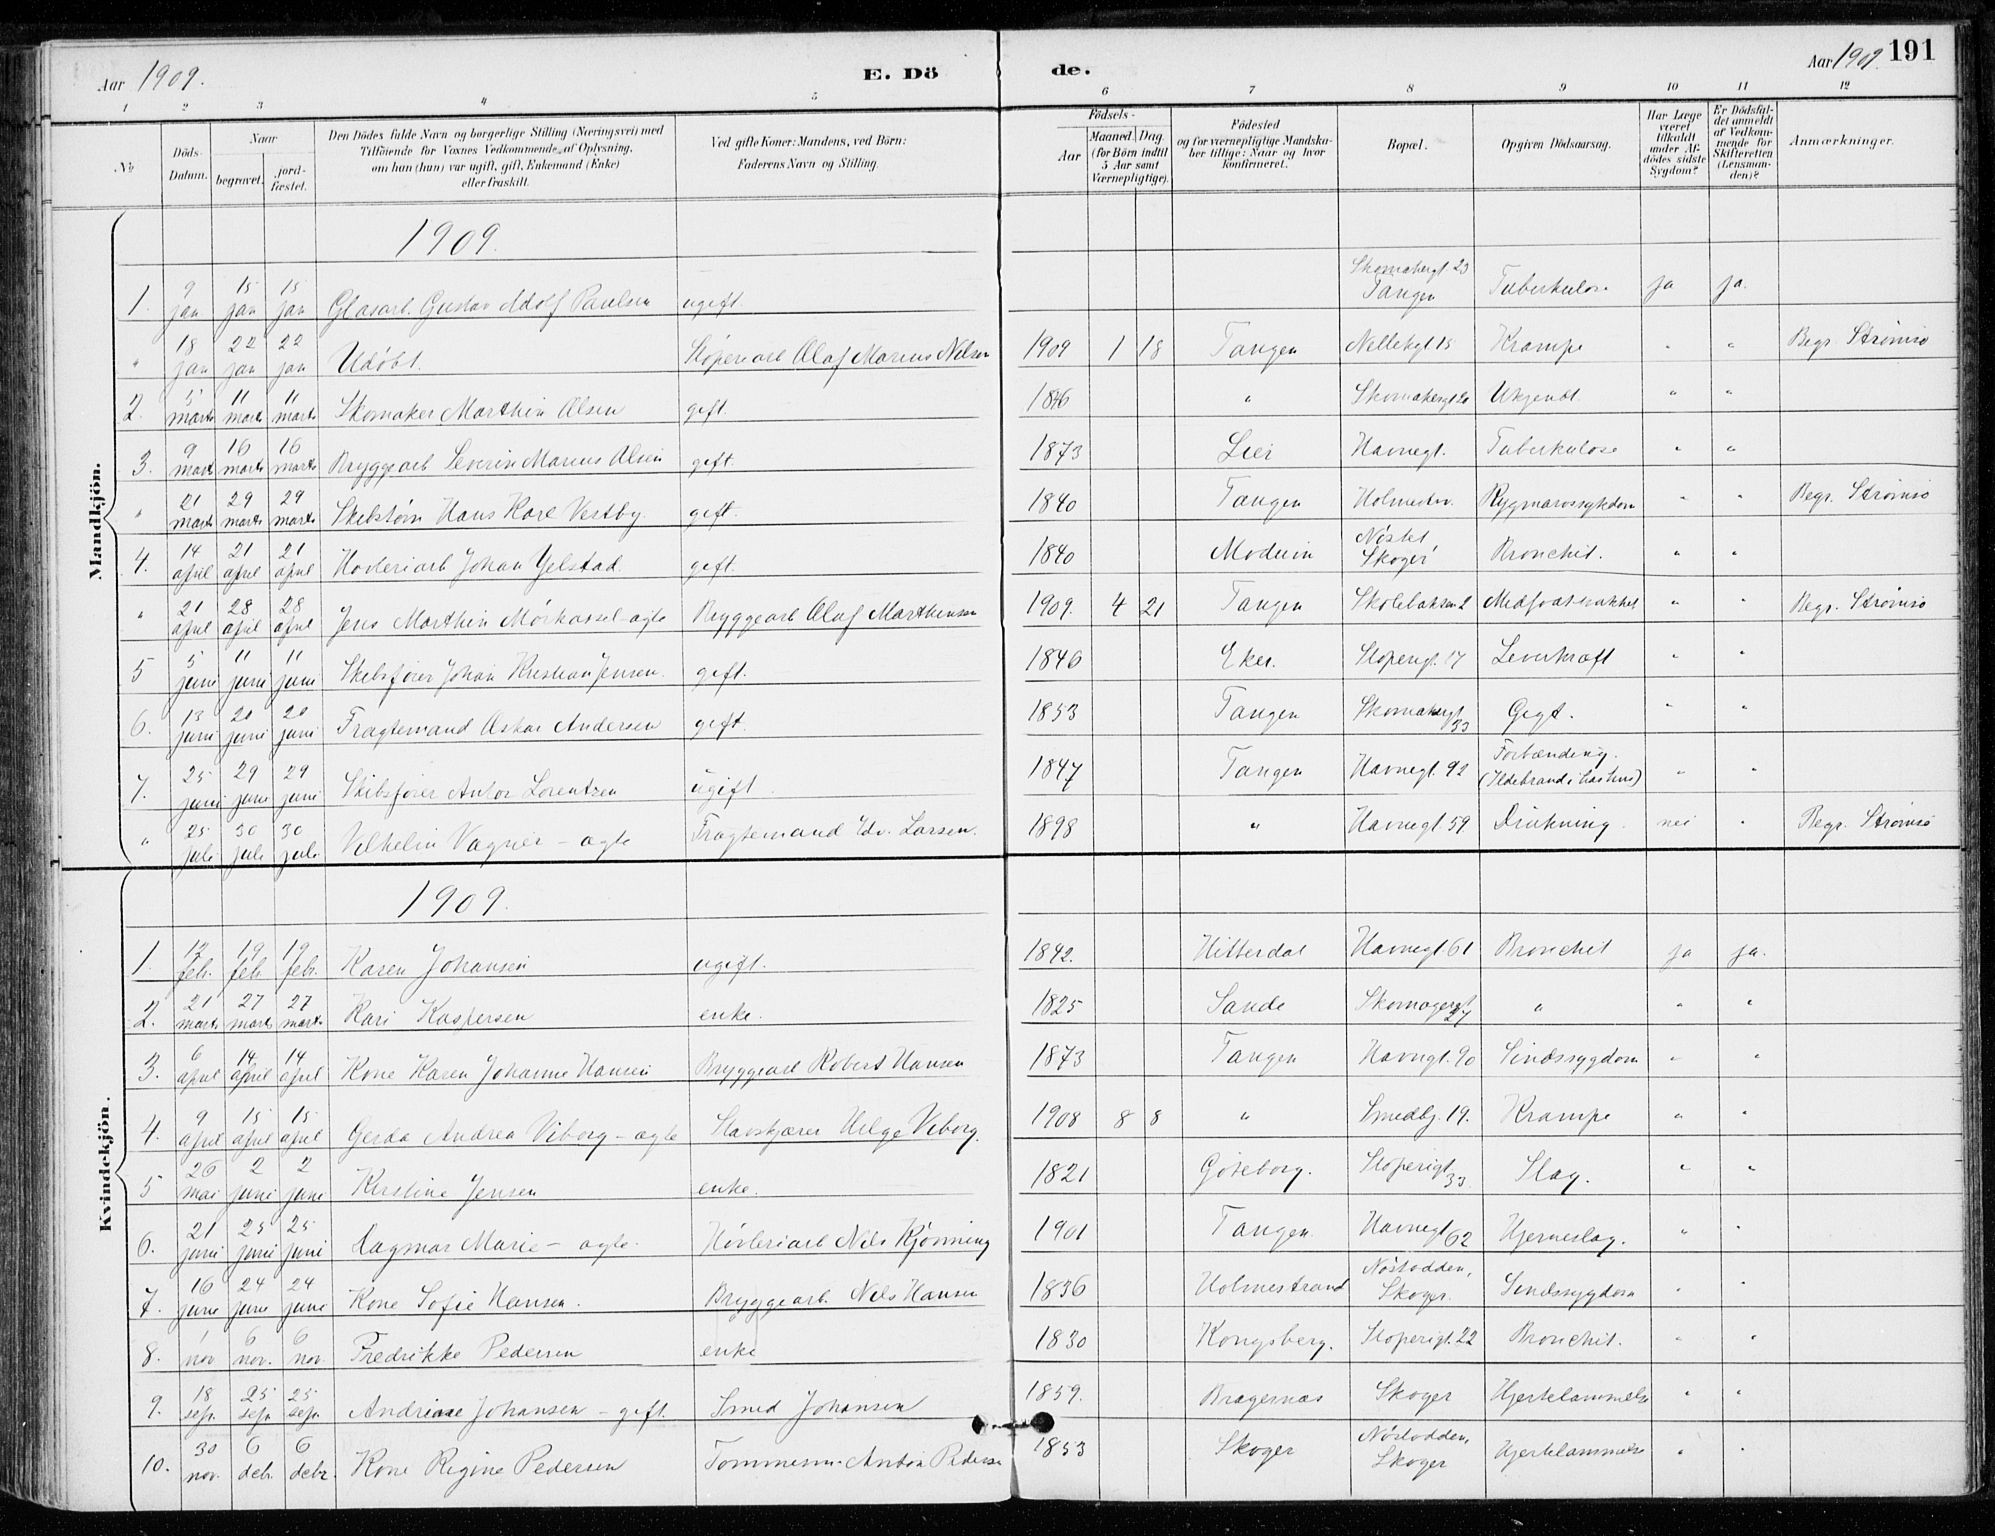 Aar 1909. E. Dö de. Aar 1909. 191
1 2 3 4 5 6 7 8 9 10 11 12
No Döds-Datum. Naar begravet. jord-fæstet. Den Dödes fulde Navn og borgerlige Stilling (Næringsvei) med Tilföiende for Voxnes Vedkommende af Oplysning, om han (hun) var ugift, gift, Enkemand (Enke) eller fraskilt. Ved gifte Koner: Mandens, ved Börn: Faderens Navn og Stilling. Födsels- Aar Maaned. Dag. (for Börn indtil 5 Aar samt Værnepligtige). Födested og for værnepligtige Mandskaber tillige: Naar og hvor konfirmeret. Bopæl. Opgiven Dödsaarsag. Har Læge været tilkaldt under Afdödes sidste Sygdom? Er Dödsfaldet anmeldt af Vedkommende for Skifteretten (Lensmanden)? Anmærkninger.
Mandkjön.
1909.
1. 9 jan 15 jan 15 jan Glasarb. Gustav Adolf Paulsen ugift. Skomakergt 23 Tangen Tuberkulose ja ja.
" 18 jan 22 jan 22 jan Udøbt. Støperiarb Olaf Marius Nilsen 1909 1 18 Tangen Krampe " " Begr. Strømsø
2. 5 marts 11 marts 11 marts Skomaker Marthin Olsen gift. 1846 " Skomakergt 20 Ukjendt " "
3. 9 marts 16 marts 16 marts Bryggearb Severin Marius Olsen gift. 1873 Lier Havnegt. Tuberkulose " "
" 21 marts 29 marts 29 marts Hans Karl Vestby. gift. 1840 Tangen Rygmarvssykdom " " Begr. Strømsø
4. 14 april 21 april 21 april Høvleriarb Johan Gjelstad. gift. 1840 Modum Nøstet Skoger Bronchit. " "
" 21 april 28 april 28 april Jens Marthin - ægte Bryggearb Olaf Marthinsen 1909. 4 21 Tangen Skolebakken 2 Medfødt svakhet " " Begr. Strømsø
5 5 juni 11 juni 11 juni Skibsfører Johan Kristian Jensen. gift. 1846 Eker. Stoperigt. 17 Leverkræft " "
6. 13 juni 20 juni 20 juni Fragtemand Oskar Andersen gift. 1853 Tangen Skomakergt 33 Gigt. " "
7. 25 juni 29 juni 29 juni Skibsfører Anton Lorentzen ugift. 1847 Tangen Havnegt. 92 Forbrænding. (Ildebrand i hus) " "
" 25 juli 30 juli 30 juli Vilhelm Vagner - ægte Fragtemand Edv. Larsen. 1898 " Havnegt 59 Drukning. nei " Begr. Strømsø
Kvindekjön.
1909.
1. 12 febr. 19 febr 19 febr. Karen Johansen ugift. 1842. Hitterdal Havnegt 61 Bronchit ja ja.
2. 21 marts 27 marts 27 marts Kari Kaspersen enke. 1825 Sande Skomagergt 27 " " "
3. 6 april 14 april 14 april Kone Karen Johanne Hansen Bryggearb Robert Hansen 1873 Tangen Havngt. 90 Sindssygdom " "
4. 9 april 15 april 15 april Gerda Andrea Viborg - ægte Helge Viborg. 1908 8 8 " Smedbg. 19. Krampe " "
5 26 mai 2 juni 2 juni Kirstine Jensen enke. 1821 Göteborg. Stoperigt 33 Slag. " "
6. 21 juni 25 juni 25 juni Dagmar Marie - ægte. Høvleriarb Nils Kjønning 1901 Tangen. Havnegt 62 Hjerneslag. " "
7. 16 juni 24 juni 24 juni Kone Sofie Hansen. Bryggearb. Nils Hansen 1836 Holmestrand Nøstodden, Skoger. Sindssygdom " "
8. 1 nov 6 nov. 6 nov. Fredrikke Pedersen enke 1830 Kongsberg. Stoperigt. 22 Bronchit. " "
9. 18 sep. 25 sep. 25 sep. Andrine Johansen - gift. Smed Johansen 1859. Bragernæs Skoger Hjertelammelse " "
10. 30 nov. 6 debr. 6 debr. Kone Regine Pedersen Tømmerm. Anton Pedersen 1853 Skoger Nøstodden, Skoger Hjertelammelse " "